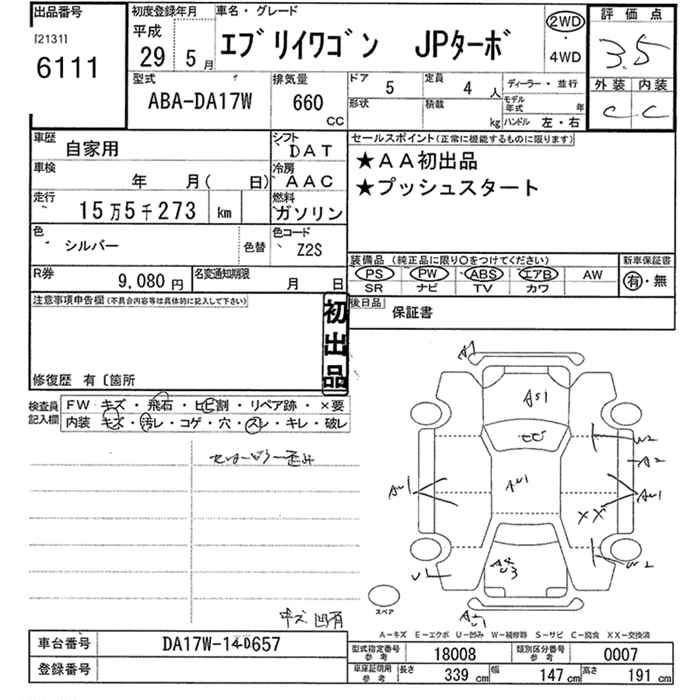 出品番号 初度登録年月 車名・グレード 評価点
[2131] 平成 2WD
6111 29 5月 エブリイワゴン JPターボ ・ 3.5
4WD
型式 排気量 ドア 5 定員 4人 ディーラー・並行 外装 内装
ABA-DA17W 660 形状 積載 モデル年式 年 C C
CC kg ハンドル 左・右
車歴 自家用 シフト DAT セールスポイント(正常に機能するものに限ります)
車検 年 月( 日) 冷房 AAC ★AA初出品
走行 15万5千273 km 燃料 ガソリン ★プッシュスタート
色 シルバー 色替 色コード Z2S
装備品(純正品に限り○をつけてください) 新車保証書
R券 9,080円 名変通知期限 月 日 PS PW ABS エアB AW 有・無
SR ナビ TV カワ
注意事項申告欄(不具合内容等は具体的に記入して下さい) 初出品 後日品 保証書
修復歴 有〔箇所
検査員 FW キズ・飛石・ヒビ割・リペア跡・×要
記入欄 内装 キズ・汚レ・コゲ・穴・スレ・キレ・破レ
A1
AS1
W2
A2
AU1 AU1 AU1
XX
W2
U1
スペア
キズ 凹有
A-キズ E-エクボ U-凹み W-補修跡 S-サビ C-腐食 XX-交換済
車台番号 DA17W-140657 型式指定番号 参考 18008 類別区分番号 参考 0007
登録番号 車庫証明用 参考 長さ 339cm 幅 147cm 高さ 191cm